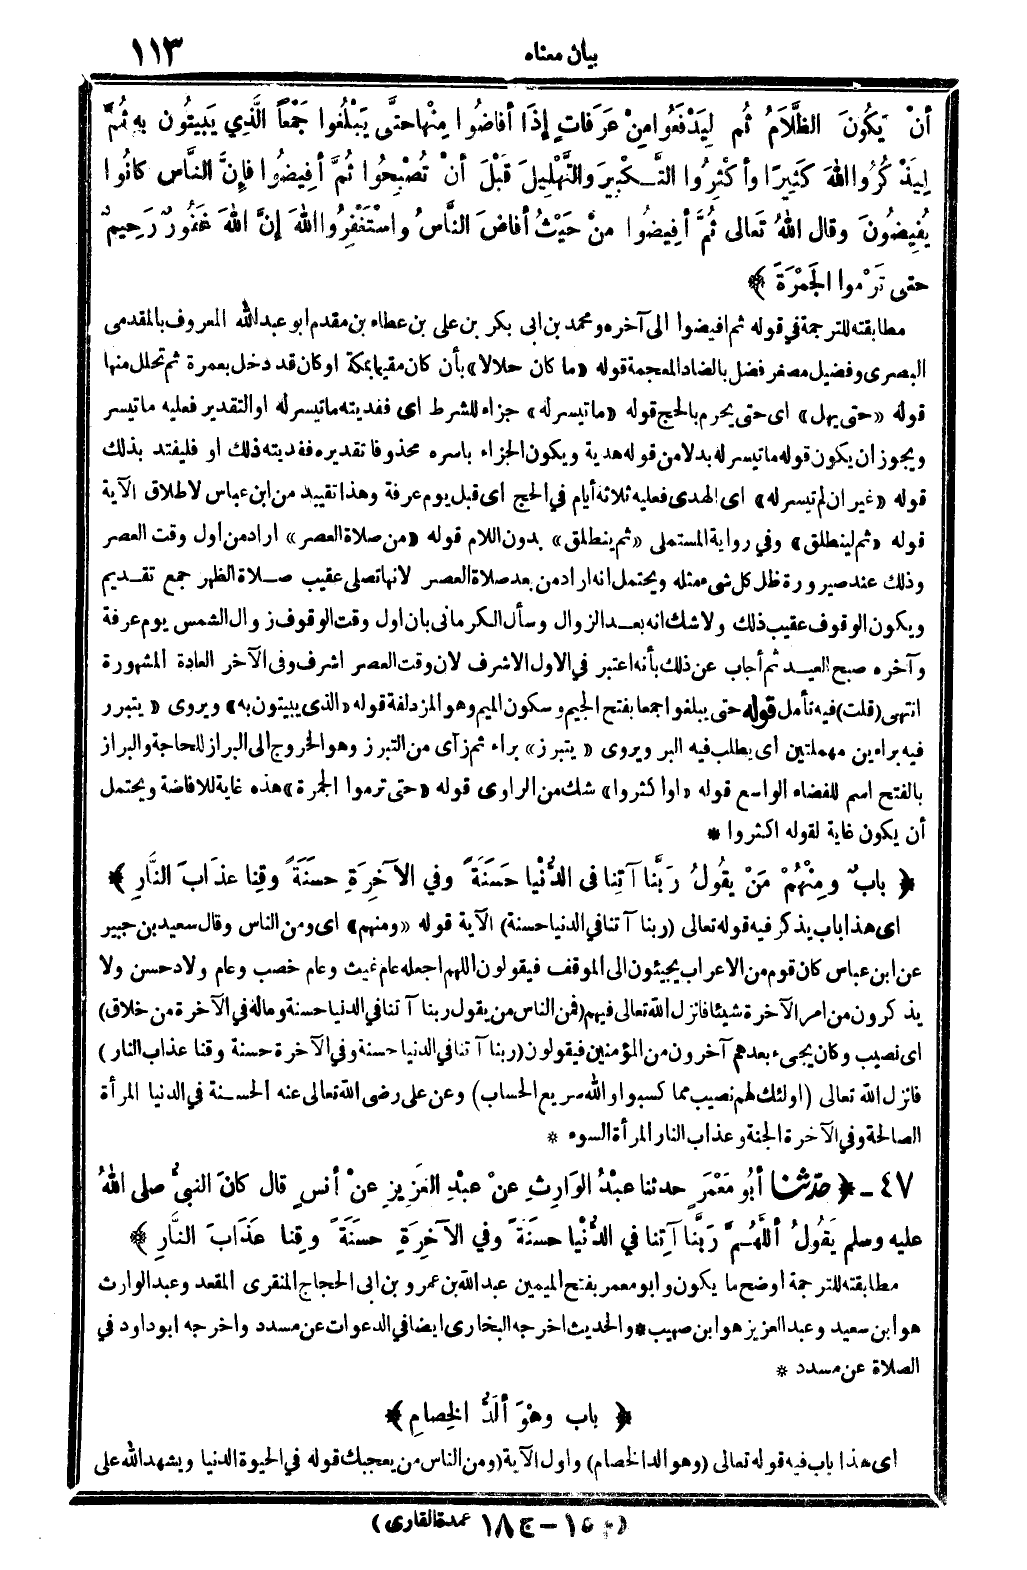 بيان معناه ١١٣
أنْ يَكُونَ الظَّلَامُ ثُم لِيَدْفَعُوا مِنْ عَرَفَاتٍ إذَا أفاضُوا مِنْها حتَّى يَبْلُغُوا جَمْعاً الَّذِي يَبيتُون بِهِ ثُمَّ
لِيَذْكُرُوا اللهَ كَثِيرًا وأكْثِرُوا التَّكْبِيرَ والتَّهْلِيلَ قَبْلَ أنْ تُصْبِحُوا ثُمَّ أفِيضُوا فإِنَّ النَّاس كانُوا
يُفِيضُونَ وقال اللهُ تَعالى ثُمَّ أفِيضُوا منْ حَيْثُ أفاضَ النَّاسُ واسْتَغْفِرُوا اللهَ إنَّ اللهَ غَفُورٌ رَحِيمٌ
حتى تَرْموا الجَمْرَةَ ﴾
مطابقته للترجمة في قوله ثم افيضوا الى آخره ومحمد بن ابى بكر بن على بن عطاء بن مقدم ابو عبد الله المعروف بالمقدمى
البصرى وفضيل مصغر فضل بالضاد المعجمة قوله «ما كان حلالا» بأن كان مقيما بمكة او كان قد دخل بعمرة ثم تحلل منها
قوله «حتى يهل» اى حتى يحرم بالحج قوله «ما تيسر له» جزاء للشرط اى ففديته ما تيسر له او التقدير فعليه ما تيسر
ويجوز ان يكون قوله ما تيسر له بدلا من قوله هدية ويكون الجزاء باسره محذوفا تقديره ففديته ذلك او فليفتد بذلك
قوله «غير ان لم تيسر له» اى الهدى فعليه ثلاثة أيام في الحج اى قبل يوم عرفة وهذا تقييد من ابن عباس لاطلاق الآية
قوله «ثم لينطلق» وفي رواية المستملى «ثم ينطلق» بدون اللام قوله «من صلاة العصر» اراد من أول وقت العصر
وذلك عند صيرورة ظل كل شىء مثله ويحتمل انه اراد من بعد صلاة العصر لانها تصلى عقيب صلاة الظهر جمع تقديم
ويكون الوقوف عقيب ذلك ولا شك انه بعد الزوال وسأل الكرمانى بان اول وقت الوقوف زوال الشمس يوم عرفة
وآخره صبح العيد ثم أجاب عن ذلك بأنه اعتبر في الاول الاشرف لان وقت العصر اشرف وفى الآخر العادة المشهورة
انتهى (قلت) فيه تأمل قوله حتى يبلغوا جمعا بفتح الجيم وسكون الميم وهو المزدلفة قوله «الذى يبيتون به» ويروى «يتبرر
فيه براءين مهملتين اى يطلب فيه البر ويروى «يتبرز» براء ثم زآى من التبرز وهو الخروج الى البراز للحاجة والبراز
بالفتح اسم للفضاء الواسع قوله «او اكثروا» شك من الراوى قوله «حتى ترموا الجمرة» هذه غاية للافاضة ويحتمل
أن يكون غاية لقوله اكثروا *
﴿ بابٌ ومِنْهُمْ مَنْ يقُولُ رَبَّنا آتِنا فى الدُّنْيا حَسَنَةً وفي الآخِرَةِ حسَنَةً وقِنا عذَابَ النَّارِ ﴾
اى هذا باب يذكر فيه قوله تعالى (ربنا آتنا في الدنيا حسنة) الآية قوله «ومنهم» اى ومن الناس وقال سعيد بن جبير
عن ابن عباس كان قوم من الاعراب يجيئون الى الموقف فيقولون اللهم اجعله عام غيث وعام خصب وعام ولاد حسن ولا
يذكرون من امر الآخرة شيئا فانزل الله تعالى فيهم (فمن الناس من يقول ربنا آتنا في الدنيا حسنة وماله في الآخرة من خلاق)
اى نصيب وكان يجىء بعدهم آخرون من المؤمنين فيقولون (ربنا آتنا في الدنيا حسنة وفي الآخرة حسنة وقنا عذاب النار)
فانزل الله تعالى (اولئك لهم نصيب مما كسبوا والله سريع الحساب) وعن على رضى الله تعالى عنه الحسنة في الدنيا المرأة
الصالحة وفي الآخرة الجنة وعذاب النار المرأة السوء *
٤٧ - ﴿ حدثنا أبُو مَعْمَرٍ حدثنا عبْدُ الوَارِثِ عنْ عبْدِ العَزِيزِ عنْ أنَسٍ قال كانَ النبيُّ صلى اللهُ
عليه وسلم يَقُولُ أللَّهُمَّ رَبَّنا آتِنا في الدُّنْيا حسَنَةً وفي الآخِرَةِ حسَنَةً وقِنا عَذَابَ النَّارِ ﴾
مطابقته للترجمة أوضح ما يكون وابو معمر بفتح الميمين عبد الله بن عمرو بن ابى الحجاج المنقرى المقعد وعبد الوارث
هو ابن سعيد وعبد العزيز هو ابن صهيب * والحديث اخرجه البخارى ايضا في الدعوات عن مسدد واخرجه ابو داود في
الصلاة عن مسدد *
﴿ باب وهْوَ ألَدُّ الخِصامِ ﴾
اى هذا باب فيه قوله تعالى (وهو الد الخصام) واول الآية (ومن الناس من يعجبك قوله في الحيوة الدنيا ويشهد الله على
(م ١٥ - ج ١٨ عمدة القارى)